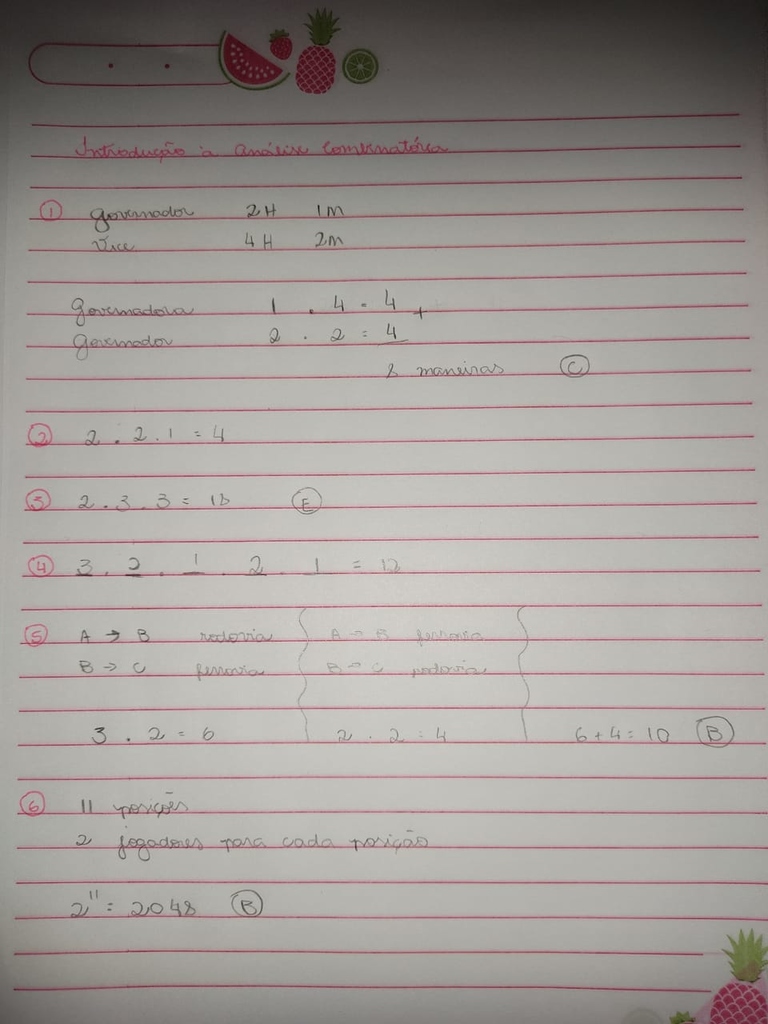 Introdução à Análise Combinatória
① Governador 2H 1M
Vice 4H 2M
Governadora 1 . 4 = 4 +
Governador 2 . 2 = 4
8 maneiras Ⓒ
② 2 . 2 . 1 = 4
③ 2 . 3 . 3 = 18 Ⓔ
④ 3 . 2 . 1 . 2 . 1 = 12
⑤ A → B rodovia A → B ferrovia
B → C ferrovia B → C rodovia
3 . 2 = 6 2 . 2 = 4 6 + 4 = 10 Ⓑ
⑥ 11 posições
2 jogadores para cada posição
2¹¹ = 2048 Ⓑ